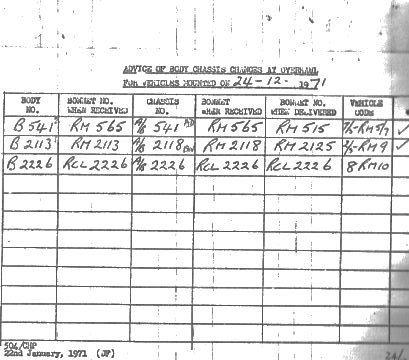 ADVICE OF BODY CHASSIS CHANGES AT OVERHAUL
FOR VEHICLES MOUNTED ON 24-12-1971
BODY NO. BONNET NO. WHEN RECEIVED CHASSIS NO. BONNET WHEN RECEIVED BONNET NO. WHEN DELIVERED VEHICLE CODE
B541 RM565 A/B 541 AD RM565 RM515 2/5RM5/7 ✓
B2113 RM2113 A/B 2118 RM2118 RM2125 2/5RM9 ✓
B2226 RCL2226 A/B 2226 RCL2226 RCL2226 8RM10
504/CHP
22nd January, 1971 (JF)